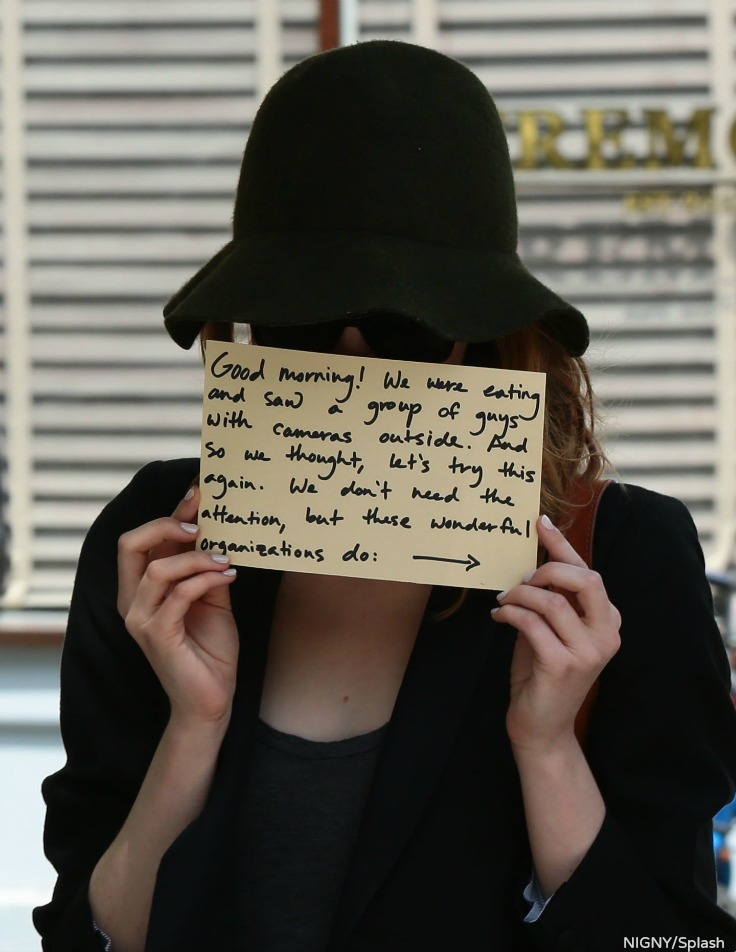 Good morning! We were eating
and saw a group of guys
with cameras outside. And
so we thought, let's try this
again. We don't need the
attention, but these wonderful
organizations do: →
REM
NIGNY/Splash